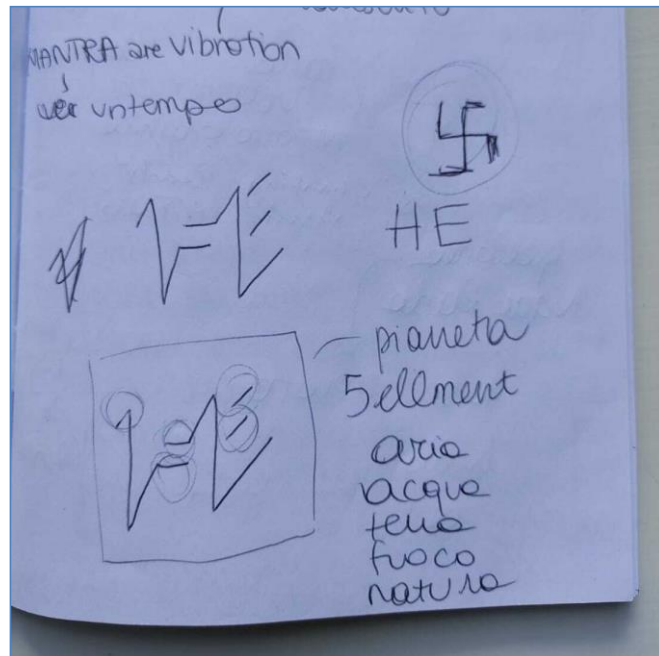 MANTRA are vibration
un tempo
HE
pianeta
5 ellment
aria
acqua
terra
fuoco
natura